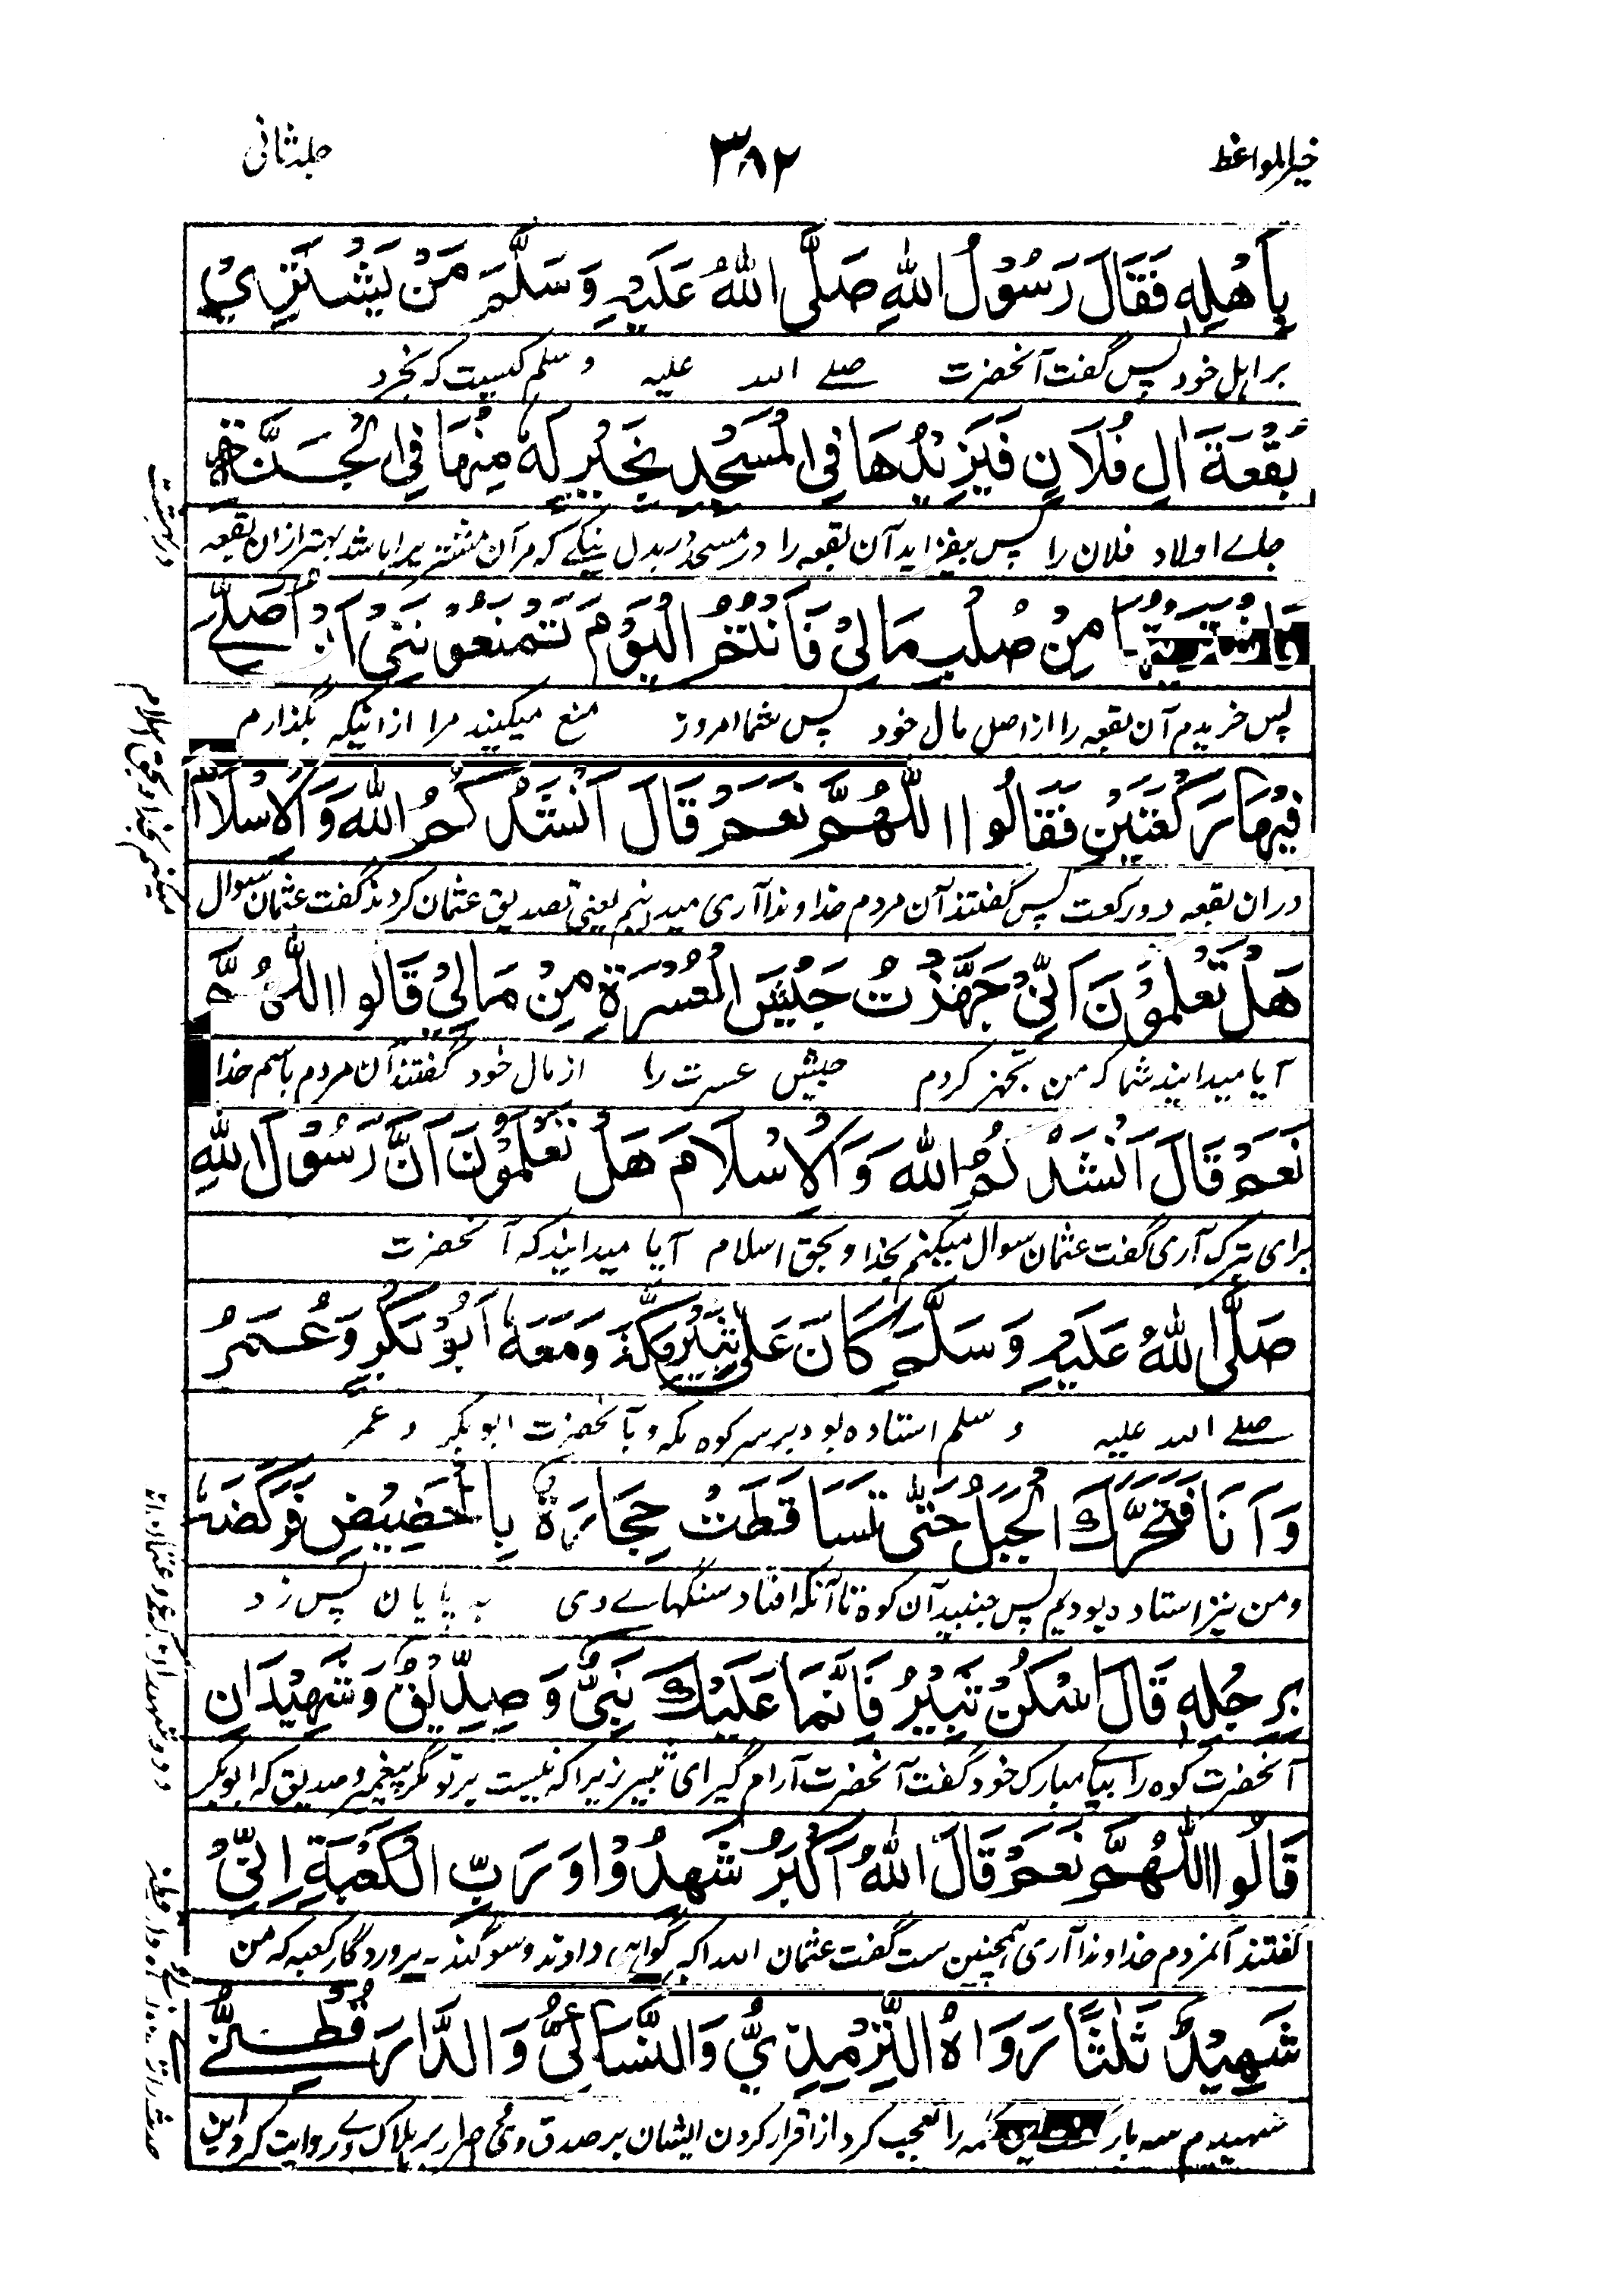 خیر المواعظ
۳۸۲
جلد ثانی
بِأَهْلِهِ فَقَالَ رَسُوْلُ اللهِ صَلَّى اللهُ عَلَيْهِ وَسَلَّمَ مَنْ يَشْتَرِيْ
بر اہل خود پس گفت آنحضرت صلے اللہ علیہ وسلم کیست کہ بخرد
بُقْعَةَ اٰلِ فُلَانٍ فَيَزِيْدُهَا فِي الْمَسْجِدِ بِخَيْرٍ لَهٗ مِنْهَا فِي الْجَنَّةِ
جاے اولاد فلان را پس بیفزاید آن بقعہ را در مسجد در بدل نیکے کہ مر آن مشتری را باشد بہتر ازان بقعہ
در بہشت
فَاشْتَرَيْتُهَا مِنْ صُلْبِ مَالِيْ فَأَنْتُمُ الْيَوْمَ تَمْنَعُوْنَنِيْ أَنْ أُصَلِّيَ
پس خریدم آن بقعہ را از اصل مال خود پس شما امروز منع میکنید مرا از انیکہ بگذارم
فِيْهَا رَكْعَتَيْنِ فَقَالُوا اللّٰهُمَّ نَعَمْ قَالَ أَنْشُدُكُمُ اللهَ وَالْإِسْلَامَ
دران بقعہ دو رکعت پس گفتند آن مردم خداوندا آری میدانیم یعنی تصدیق عثمان کردند گفت عثمان سوال
میکنم بخدا و بحق اسلام
هَلْ تَعْلَمُوْنَ أَنِّيْ جَهَّزْتُ جَيْشَ الْعُسْرَةِ مِنْ مَالِيْ قَالُوا اللّٰهُمَّ
آیا میدانید شما کہ من تجہیز کردم جیش عسرت را از مال خود گفتند آن مردم باسم خدا
نَعَمْ قَالَ أَنْشُدُكُمُ اللهَ وَالْإِسْلَامَ هَلْ تَعْلَمُوْنَ أَنَّ رَسُوْلَ اللهِ
برای تبرک آری گفت عثمان سوال میکنم بخدا و بحق اسلام آیا میدانید کہ آنحضرت
صَلَّى اللهُ عَلَيْهِ وَسَلَّمَ كَانَ عَلٰى ثَبِيْرِ مَكَّةَ وَمَعَهٗ أَبُوْ بَكْرٍ وَعُمَرُ
صلے اللہ علیہ وسلم استادہ بود بر سر کوہ مکہ و بآنحضرت ابوبکر و عمر
وَأَنَا فَتَحَرَّكَ الْجَبَلُ حَتّٰى تَسَاقَطَتْ حِجَارَةٌ بِالْحَضِيْضِ فَرَكَضَهٗ
و من نیز استادہ بودیم پس جنبید آن کوہ تا آنکہ افتاد سنگہاے وی بہ پایان پس زد
بِرِجْلِهٖ قَالَ اسْكُنْ ثَبِيْرُ فَإِنَّمَا عَلَيْكَ نَبِيٌّ وَصِدِّيْقٌ وَشَهِيْدَانِ
آنحضرت کوہ را بپاے مبارک خود گفت آنحضرت آرام گیر ای ثبیر زیرا کہ نیست بر تو مگر پیغمبر و صدیق کہ ابوبکر
قَالُوا اللّٰهُمَّ نَعَمْ قَالَ اللهُ أَكْبَرُ شَهِدُوْا وَرَبِّ الْكَعْبَةِ إِنِّيْ
گفتند آنمردم خداوندا آری ہمچنین ست گفت عثمان اللہ اکبر گواہی دادند و سوگند بہ پروردگار کعبہ کہ من
شَهِيْدٌ ثَلٰثًا رَوَاهُ التِّرْمِذِيُّ وَالنَّسَائِيُّ وَالدَّارَقُطْنِيُّ
شہیدم سہ بار را تعجب کرد از اقرار کردن ایشان بر صدق وی اصرار بر ہلاک وے روایت کرد این